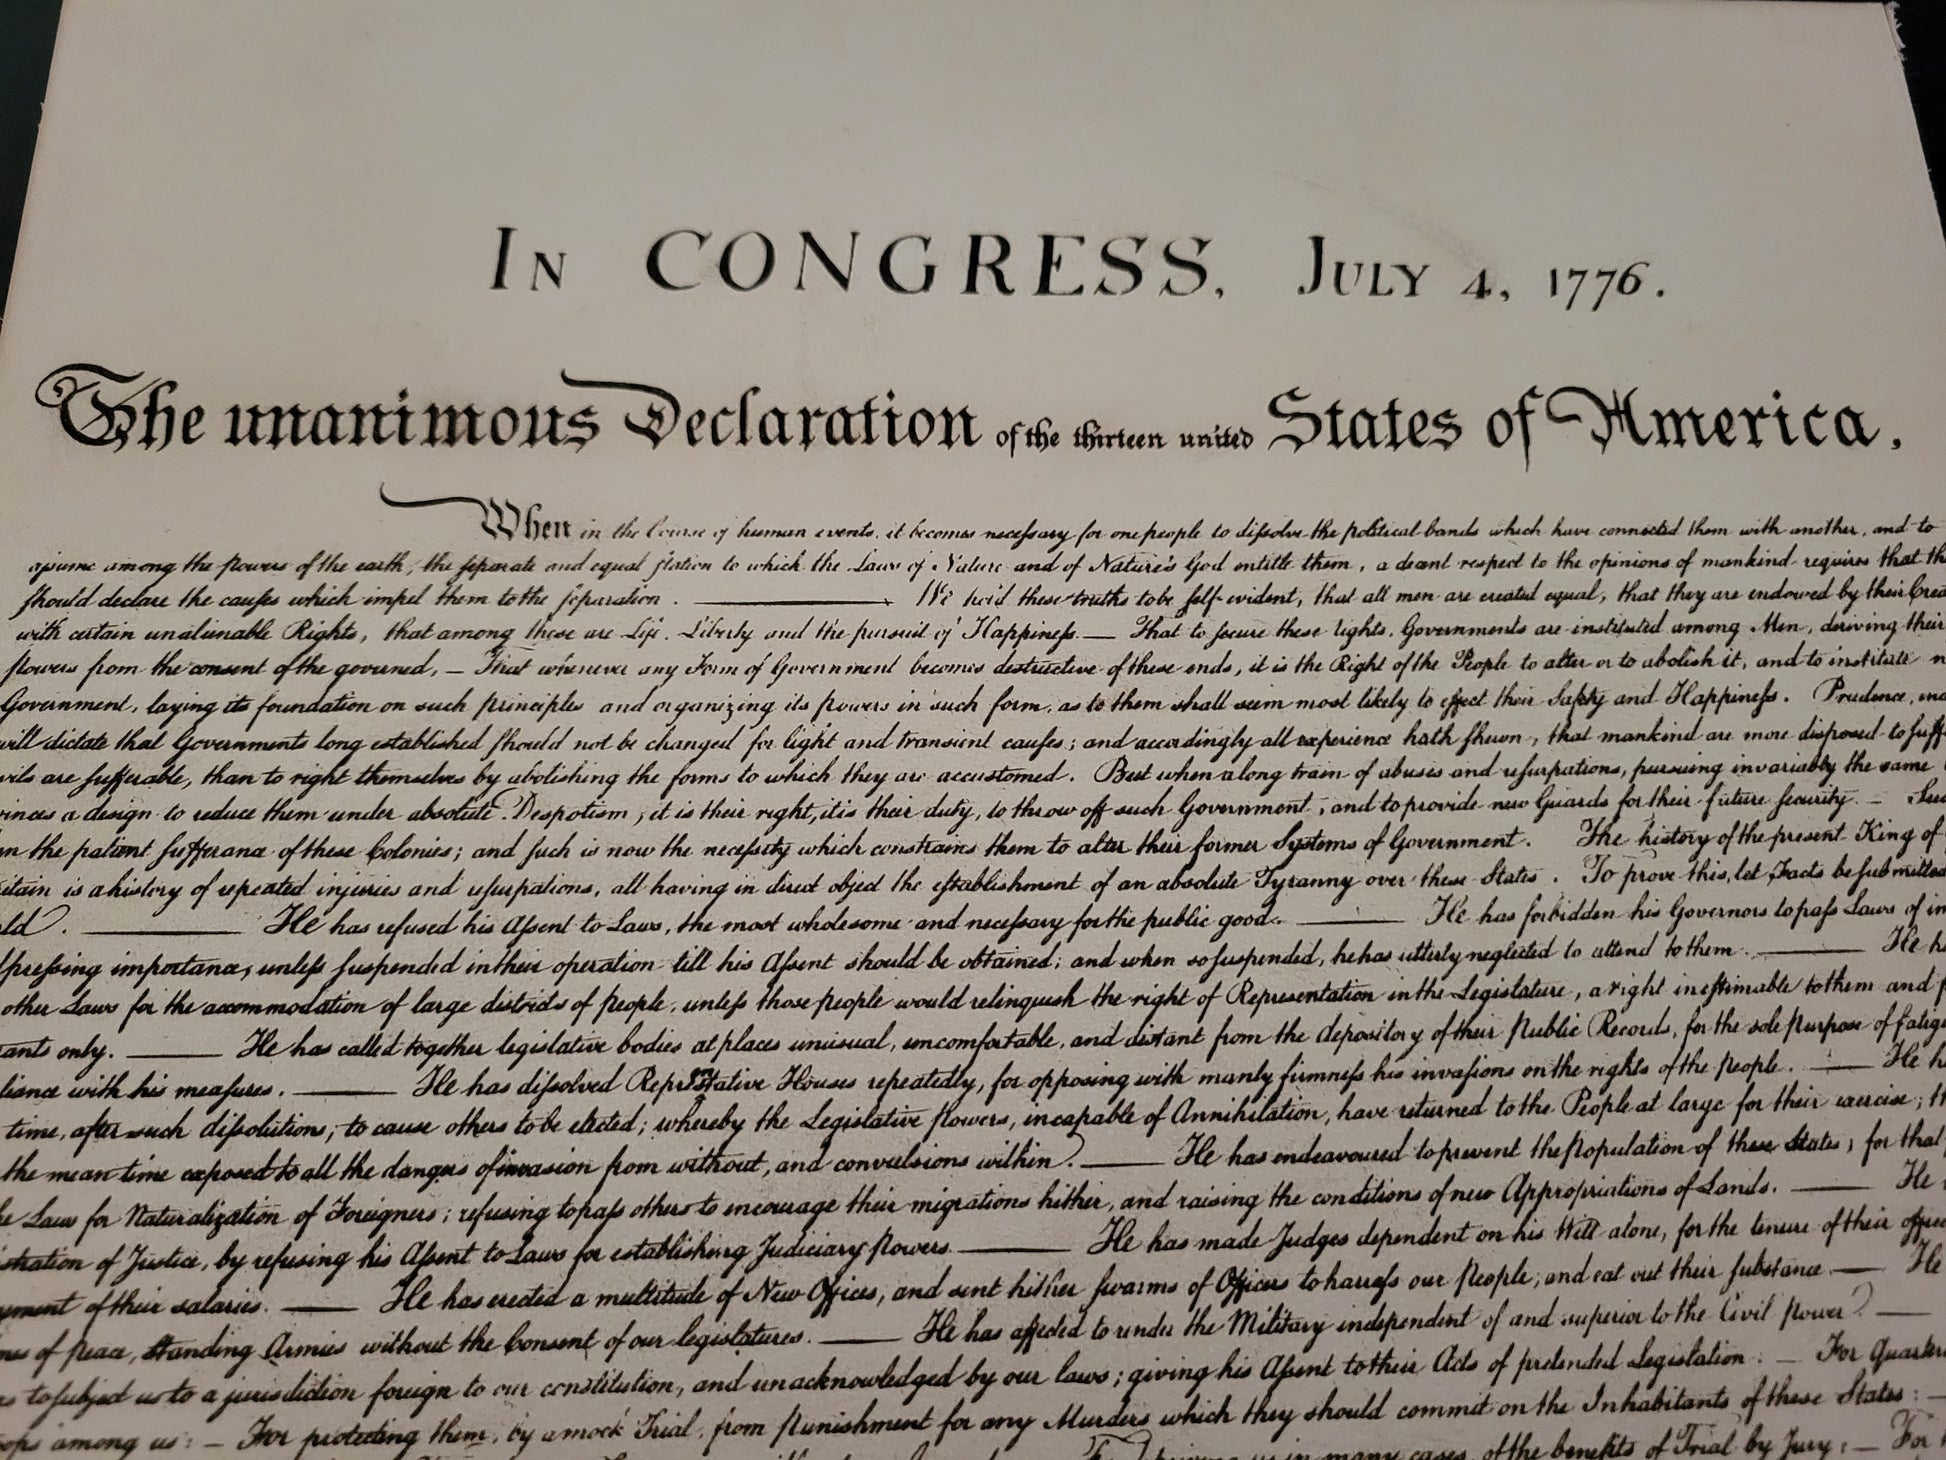 In CONGRESS, July 4, 1776.
The unanimous Declaration of the thirteen united States of America,
When in the Course of human events, it becomes necessary for one people to dissolve the political bands which have connected them with another, and to
assume among the powers of the earth, the separate and equal station to which the Laws of Nature and of Nature's God entitle them, a decent respect to the opinions of mankind requires that th
should declare the causes which impel them to the separation. ——— We hold these truths to be self-evident, that all men are created equal, that they are endowed by their Crea
with certain unalienable Rights, that among these are Life, Liberty and the pursuit of Happiness. — That to secure these rights, Governments are instituted among Men, deriving their
powers from the consent of the governed, — That whenever any Form of Government becomes destructive of these ends, it is the Right of the People to alter or to abolish it, and to institute n
Government, laying its foundation on such principles and organizing its powers in such form, as to them shall seem most likely to effect their Safety and Happiness. Prudence, ind
will dictate that Governments long established should not be changed for light and transient causes; and accordingly all experience hath shewn, that mankind are more disposed to suff
vils are sufferable, than to right themselves by abolishing the forms to which they are accustomed. But when a long train of abuses and usurpations, pursuing invariably the same
vinces a design to reduce them under absolute Despotism, it is their right, it is their duty, to throw off such Government, and to provide new Guards for their future security. — Suc
en the patient sufferance of these Colonies; and such is now the necessity which constrains them to alter their former Systems of Government. The history of the present King of
itain is a history of repeated injuries and usurpations, all having in direct object the establishment of an absolute Tyranny over these States. To prove this, let Facts be submitted
ld. ——— He has refused his Assent to Laws, the most wholesome and necessary for the public good. ——— He has forbidden his Governors to pass Laws of im
pressing importance, unless suspended in their operation till his Assent should be obtained; and when so suspended, he has utterly neglected to attend to them. ——— He h
other Laws for the accommodation of large districts of people, unless those people would relinquish the right of Representation in the Legislature, a right inestimable to them and f
rants only. ——— He has called together legislative bodies at places unusual, uncomfortable, and distant from the depository of their Public Records, for the sole purpose of fatig
liance with his measures. ——— He has dissolved Representative Houses repeatedly, for opposing with manly firmness his invasions on the rights of the people. ——— He h
time, after such dissolutions, to cause others to be elected; whereby the Legislative powers, incapable of Annihilation, have returned to the People at large for their exercise; t
the mean time exposed to all the dangers of invasion from without, and convulsions within. ——— He has endeavoured to prevent the population of these States; for that
e Laws for Naturalization of Foreigners; refusing to pass others to encourage their migrations hither, and raising the conditions of new Appropriations of Lands. ——— He
stration of Justice, by refusing his Assent to Laws for establishing Judiciary powers. ——— He has made Judges dependent on his Will alone, for the tenure of their offices
yment of their salaries. ——— He has erected a multitude of New Offices, and sent hither swarms of Officers to harrass our people, and eat out their substance. ——— He
mes of peace, Standing Armies without the Consent of our legislatures. ——— He has affected to render the Military independent of and superior to the Civil power. ———
rs to subject us to a jurisdiction foreign to our constitution, and unacknowledged by our laws; giving his Assent to their Acts of pretended Legislation: — For Quarter
oops among us: — For protecting them, by a mock Trial, from punishment for any Murders which they should commit on the Inhabitants of these States: —
us in many cases, of the benefits of Trial by Jury: — For